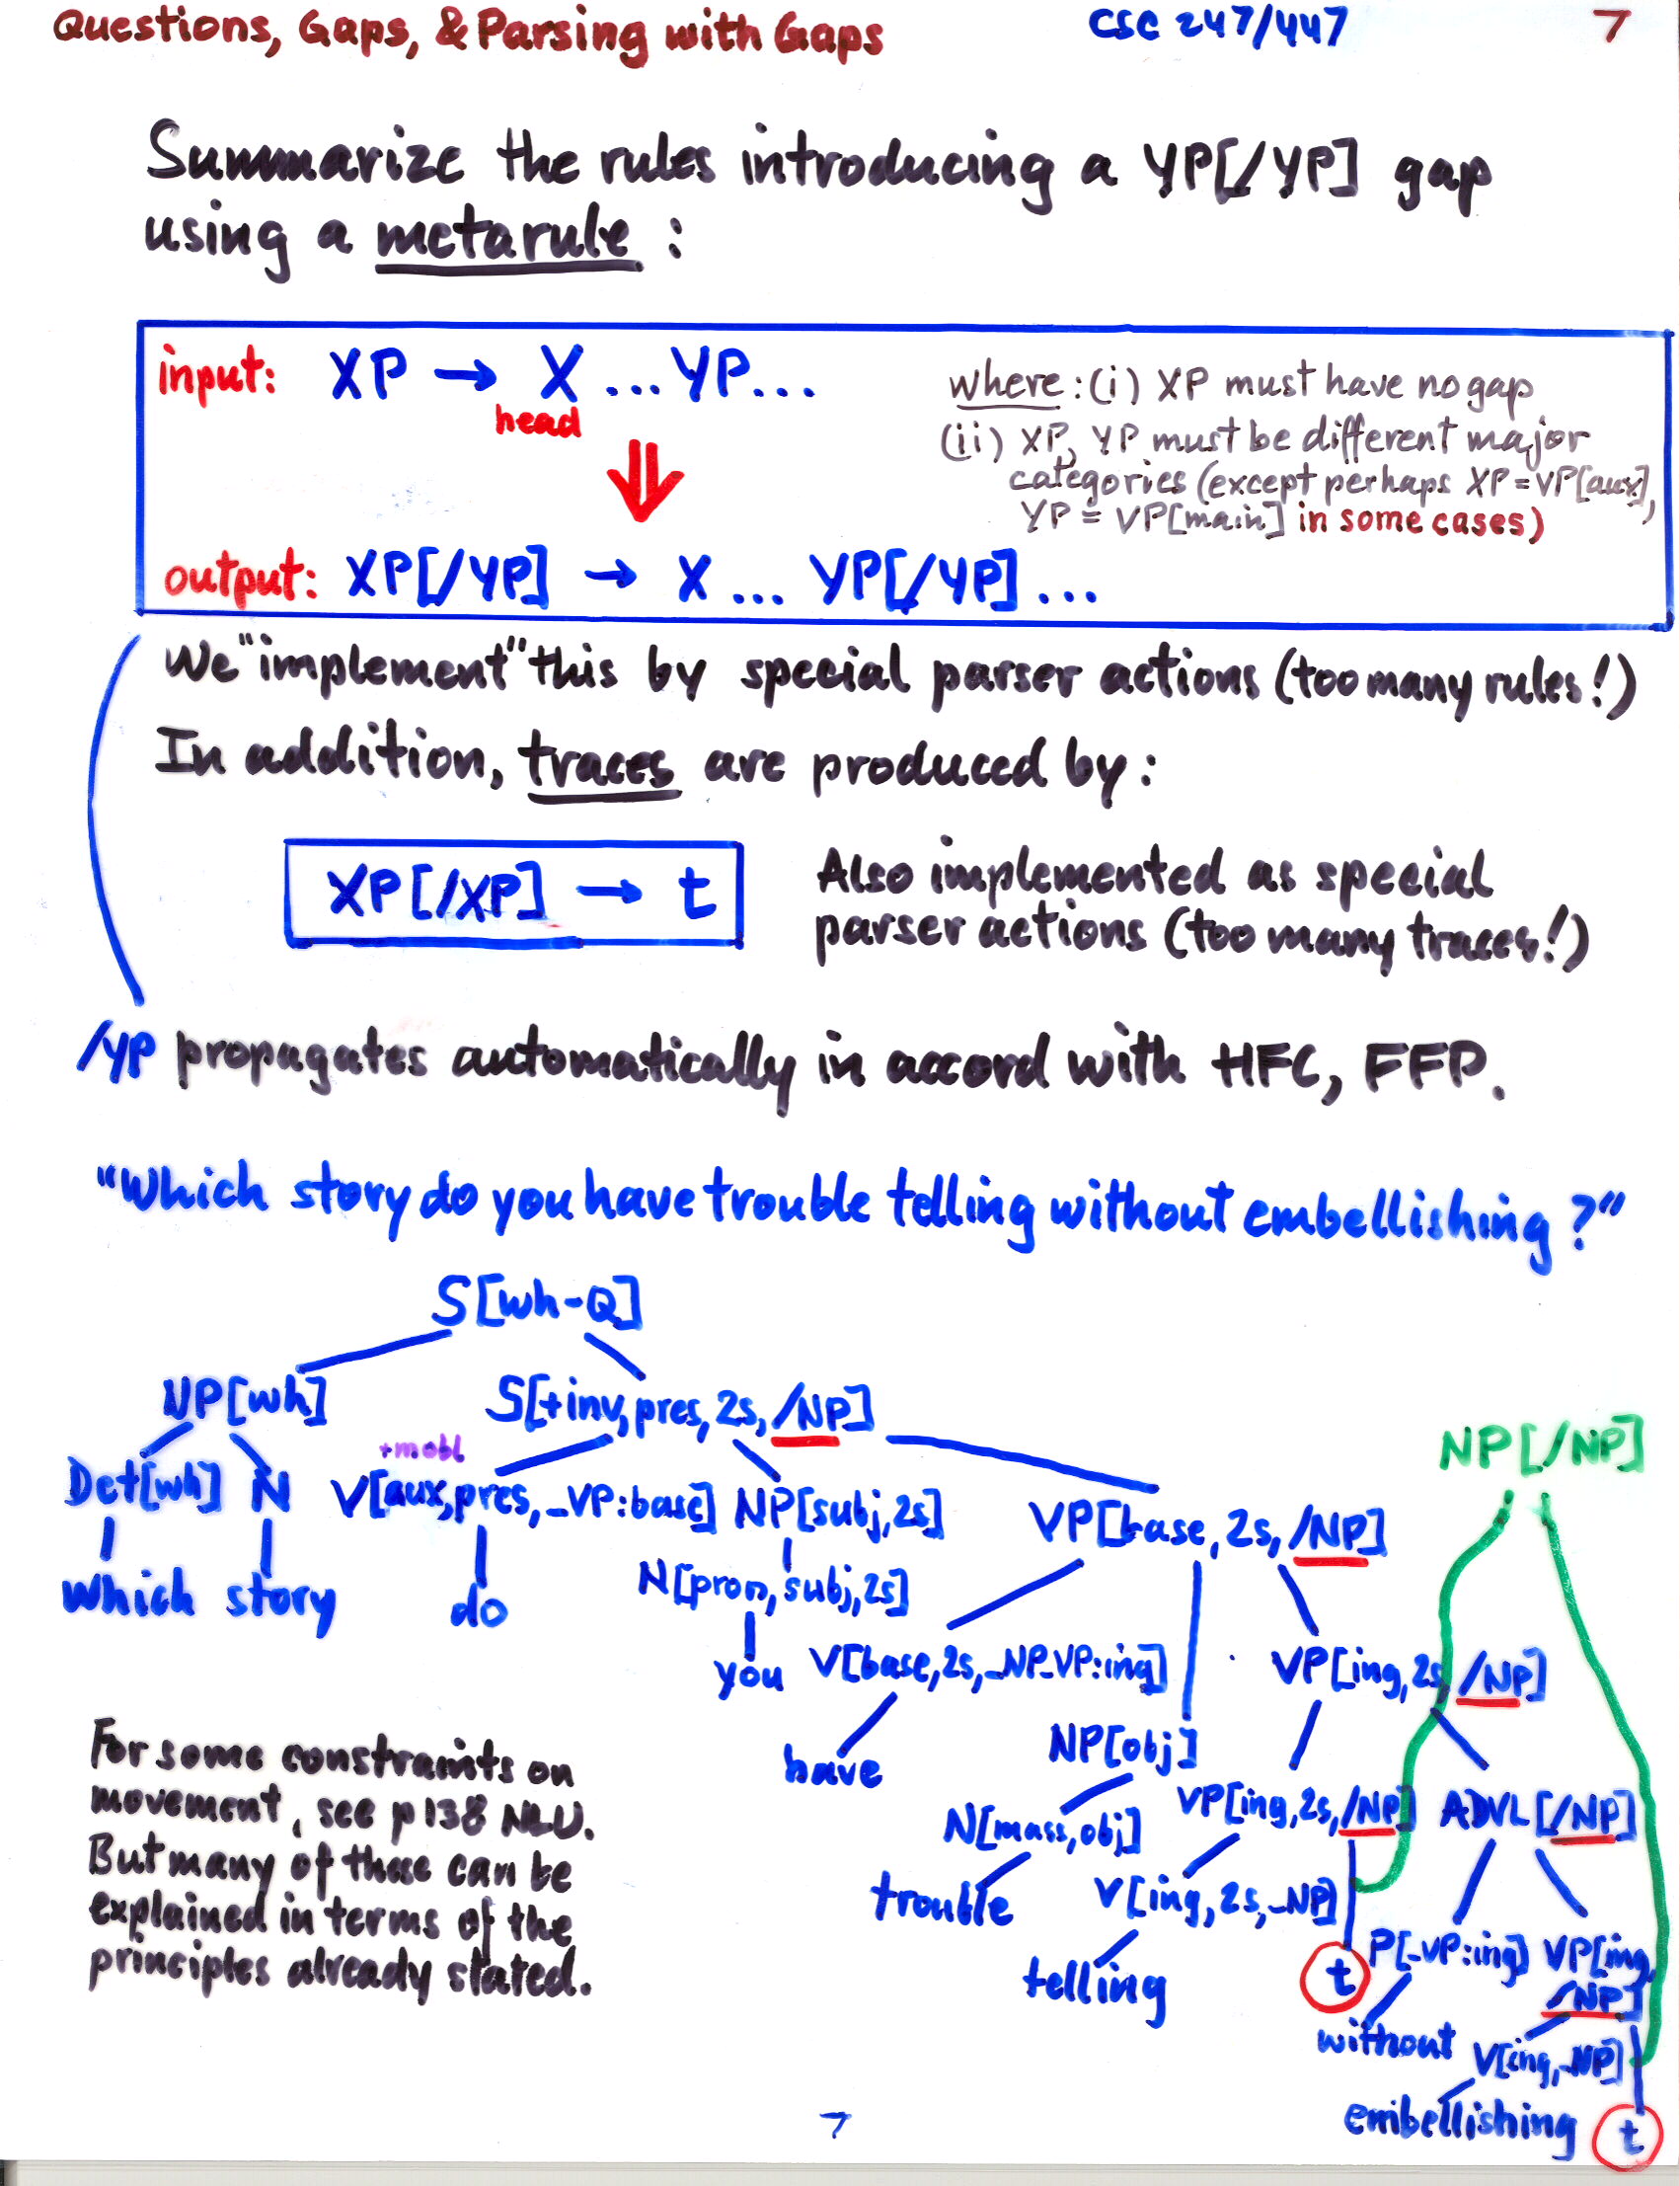 Questions, Gaps, & Parsing with Gaps CSC 247/447 7
Summarize the rules introducing a YP[/YP] gap
using a metarule :
input: XP → X ... YP...
head
where : (i) XP must have no gap
(ii) XP, YP must be different major
categories (except perhaps XP = VP[aux],
YP = VP[main] in some cases)
output: XP[/YP] → X ... YP[/YP] ...
We "implement" this by special parser actions (too many rules!)
In addition, traces are produced by :
XP[/XP] → t
Also implemented as special
parser actions (too many traces!)
/YP propagates automatically in accord with HFC, FFP.
"Which story do you have trouble telling without embellishing ?"
S[wh-Q]
NP[wh] S[+inv, pres, 2s, /NP]
NP[/NP]
+mobl
Det[wh] N V[aux, pres, _VP:base] NP[subj, 2s] VP[base, 2s, /NP]
Which story do N[pron, subj, 2s]
you V[base, 2s, _NP_VP:ing] VP[ing, 2s, /NP]
have NP[obj] VP[ing, 2s, /NP] ADVL[/NP]
N[mass, obj]
trouble V[ing, 2s, _NP] P[_VP:ing] VP[ing,
/NP]
telling t without V[ing, _NP]
embellishing t
For some constraints on
movement, see p 138 NLU.
But many of these can be
explained in terms of the
principles already stated.
7